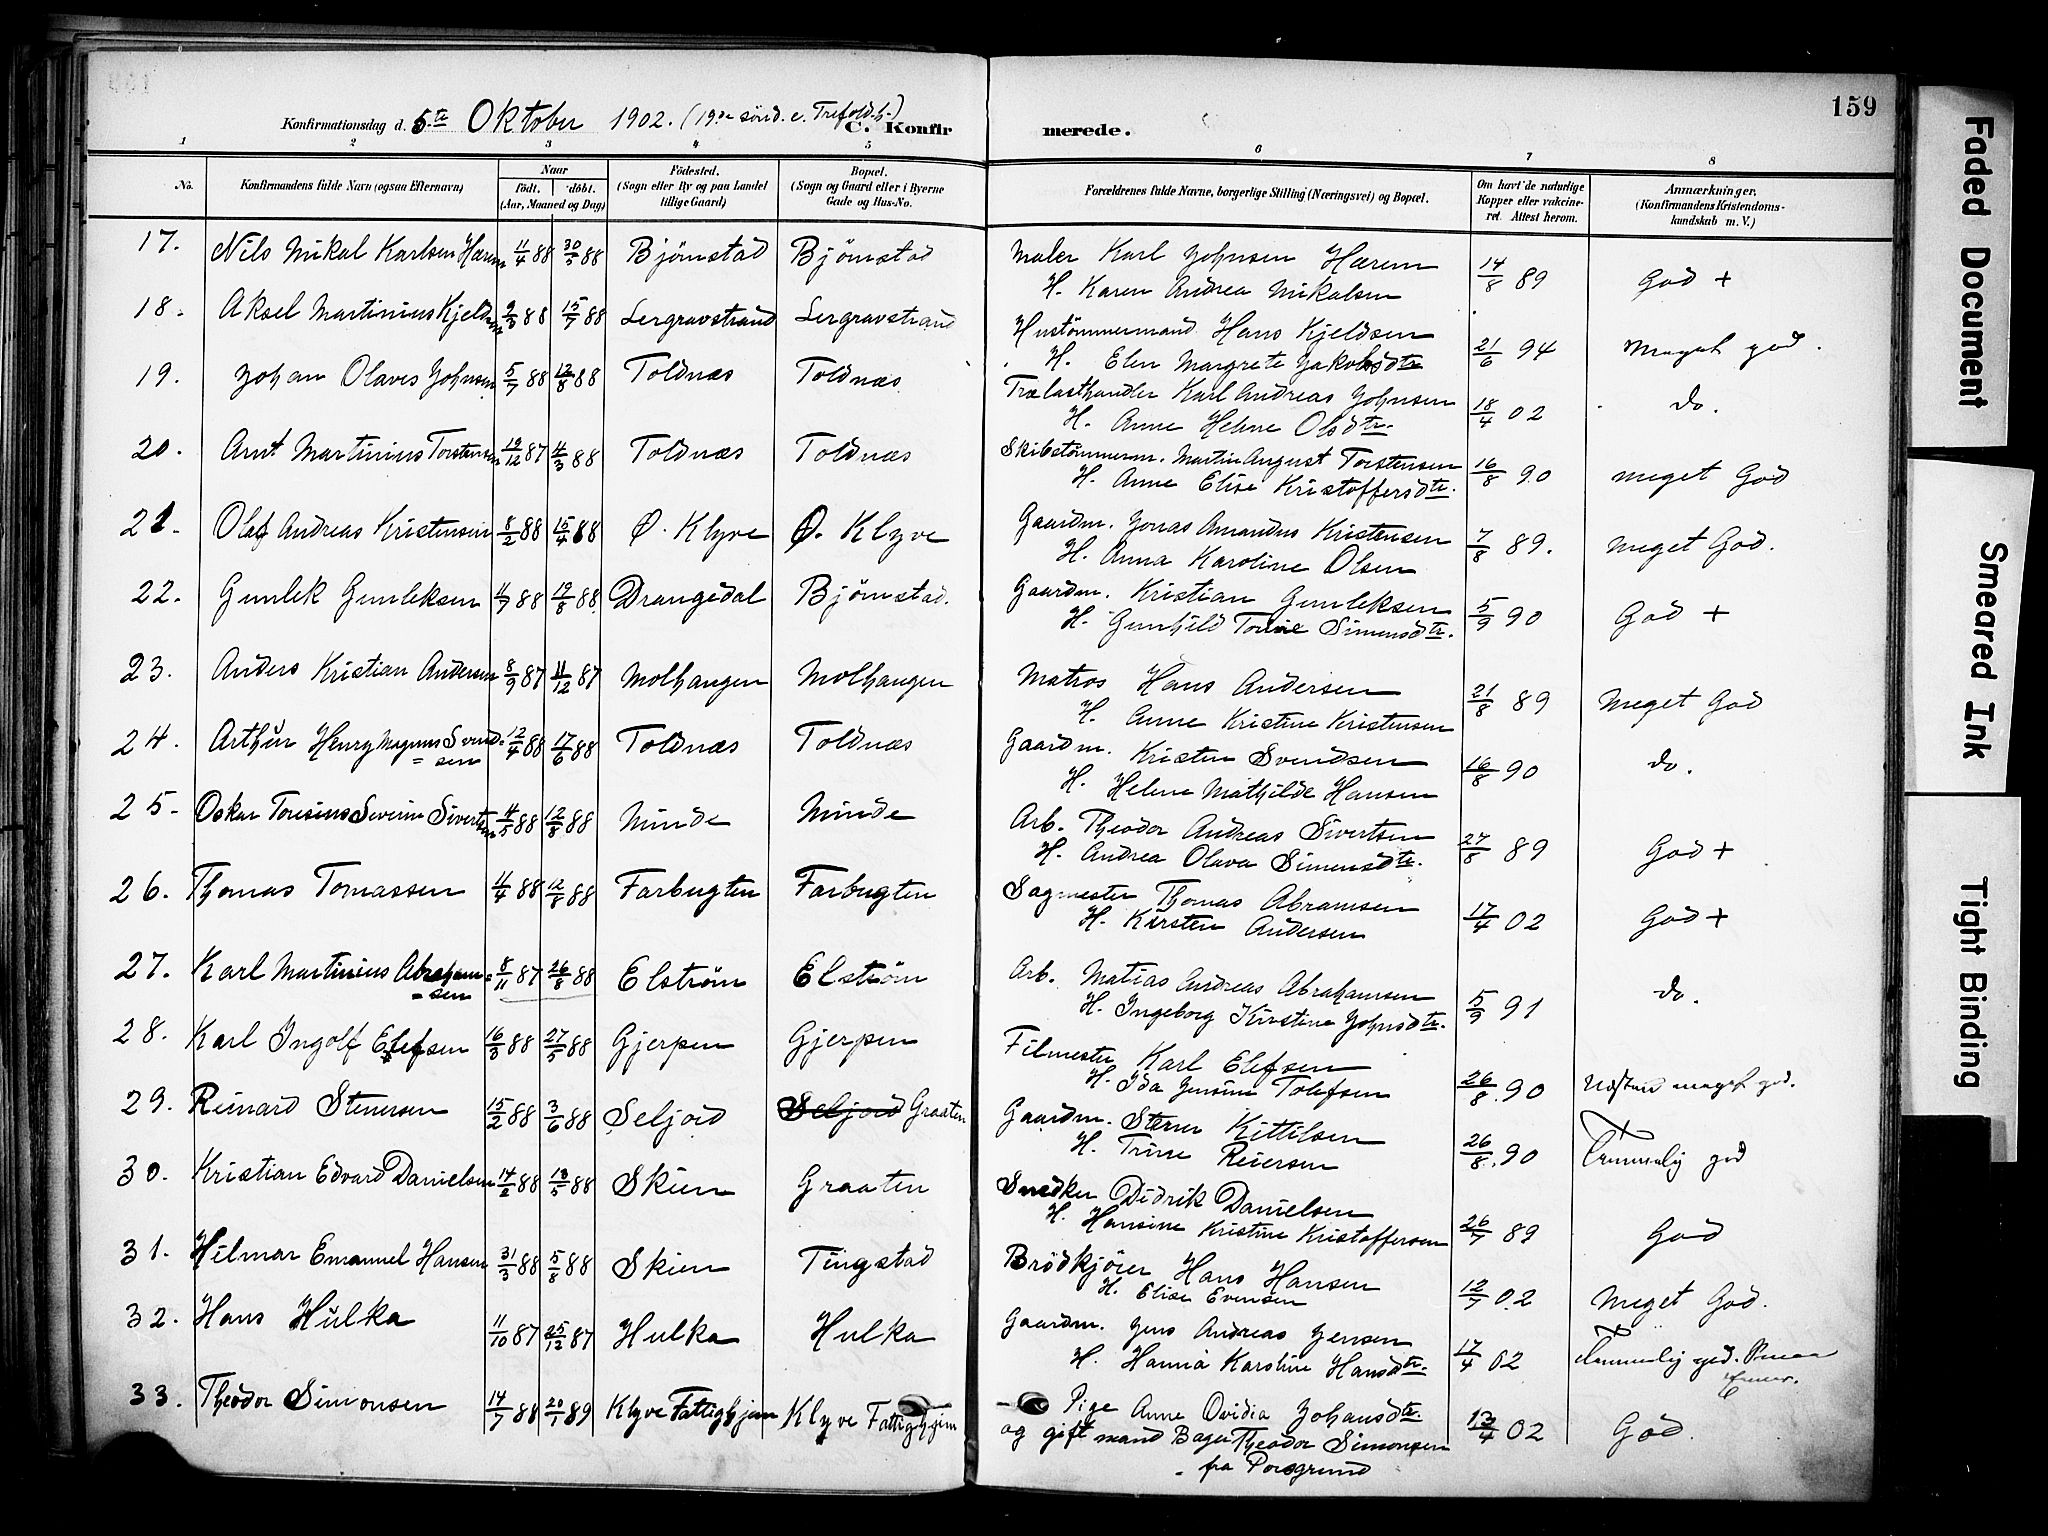 159
Konfirmationsdag d. 5te Oktober 1902. (19de sönd. e. Trefold.h.) C. Konfirmerede.
1 2 3 4 5 6 7 8
No. Konfirmandens fulde Navn (ogsaa Efternavn) Naar födt. döbt. (Aar, Maaned og Dag) Födested. (Sogn eller By og paa Landet tillige Gaard) Bopæl. (Sogn og Gaard eller i Byerne Gade og Hus-No. Forældrenes fulde Navne, borgerlige Stilling (Næringsvei) og Bopæl. Om havt de naturlige Kopper eller vaccineret. Attest herom. Anmærkninger. (Konfirmandens Kristendomskundskab m. V.)
17. Nils Mikal Karlsen Hærem 11/4 88 30/5 88 Bjørnstad Bjørnstad Maler Karl Johnsen Hærem 14/8 89 God +
H. Karen Andrea Mikalsen
18. Aksel Martinius Kjeldsen 9/3 88 15/7 88 Lergravstrand Lergravstrand Hustømmermand Hans Kjeldsen 21/6 94 Meget god.
H. Elen Margrete Jakobsdtr
19. Johan Olaves Johnsen 5/7 88 12/8 88 Toldnæs Toldnæs Trælasthandler Karl Andreas Johnsen 18/4 02 do.
H. Anne Helene Olsdtr.
20. Arnt Martinius Torstensen 19/12 87 4/3 88 Toldnæs Toldnæs Skibstømmerm. Martin August Torstensen 16/8 90 meget God
H. Anne Elise Kristoffersdtr.
21. Olaf Andreas Kristensen 8/2 88 15/4 88 Ø. Klyve Ø. Klyve Gaardm. Jonas Amandus Kristensen 7/8 89. meget God.
H. Anna Karoline Olsen
22. Gunlek Gunleksen 4/7 88 19/8 88 Drangedal Bjørnstad. Gaardm. Kristian Gunleksen 5/9 90 God +
H. Gunhild Tomine Simensdtr.
23. Anders Kristian Andersen 8/9 87 11/12 87 Molhaugen Molhaugen Matros Hans Andersen 21/8 89 Meget God
H. Anne Kristine Kristensen
24. Arthur Henry Magnus Svend=sen 12/4 88 17/6 88 Toldnæs Toldnæs Gaardm. Kristen Svendsen 16/8 90 do.
H. Helene Mathilde Hansen
25. Oskar Toresius Severin Sivertsen 4/5 88 12/8 88 Minde Minde Arb. Theodor Andreas Sivertsen 27/8 89 God +
H. Andrea Olava Simensdtr.
26. Thomas Tomassen 4/4 88 12/8 88 Farbugten Farbugten Sagmester Thomas Abramsen 17/4 02 God +
H. Kirsten Andersen
27. Karl Martinius Abraham=sen 8/11 87 26/8 88 Elstrøm Elstrøm Arb. Matias Andreas Abrahamsen 5/9 91 do.
H. Ingeborg Kirstine Johnsdtr.
28. Karl Ingolf Elefsen 16/3 88 27/5 88 Gjerpen Gjerpen Filmester Karl Elefsen 26/8. 90 Næsten meget god.
H. Ida Jensine Tolefsen
29. Reinard Stenersen 15/2 88 3/6 88 Seljord Seljord Graaten Gaardm. Stener Kittilsen 26/8. 90 Temmelig god
H. Trine Reiersen
30. Kristian Edvard Danielsen 14/2 88 13/5 88 Skien Graaten Snedker Didrik Danielsen 26/7 89 God
H. Hansine Kristine Kristoffersen
31. Hilmar Emanuel Hansen 31/3 88 5/8 88 Skien Tingstad Brødkjører Hans Hansen 12/7 02 Meget God.
H. Elise Evensen
32. Hans Hulka 11/10 87 25/12 87 Hulka Hulka Gaardm. Jens Andreas Jensen 17/4 02 Temmelig god.
H. Hanna Karoline Hansdtr.
33. Theodor Simonsen 14/7 88 20/1 89 Klyve Fattighjem Klyve Fattighjem Pige Anne Ovidia Johansdtr. 13/4 02 God.
og gift mand Bager Theodor Simonsen
fra Porsgrund
Faded Document
Smeared Ink
Tight Binding